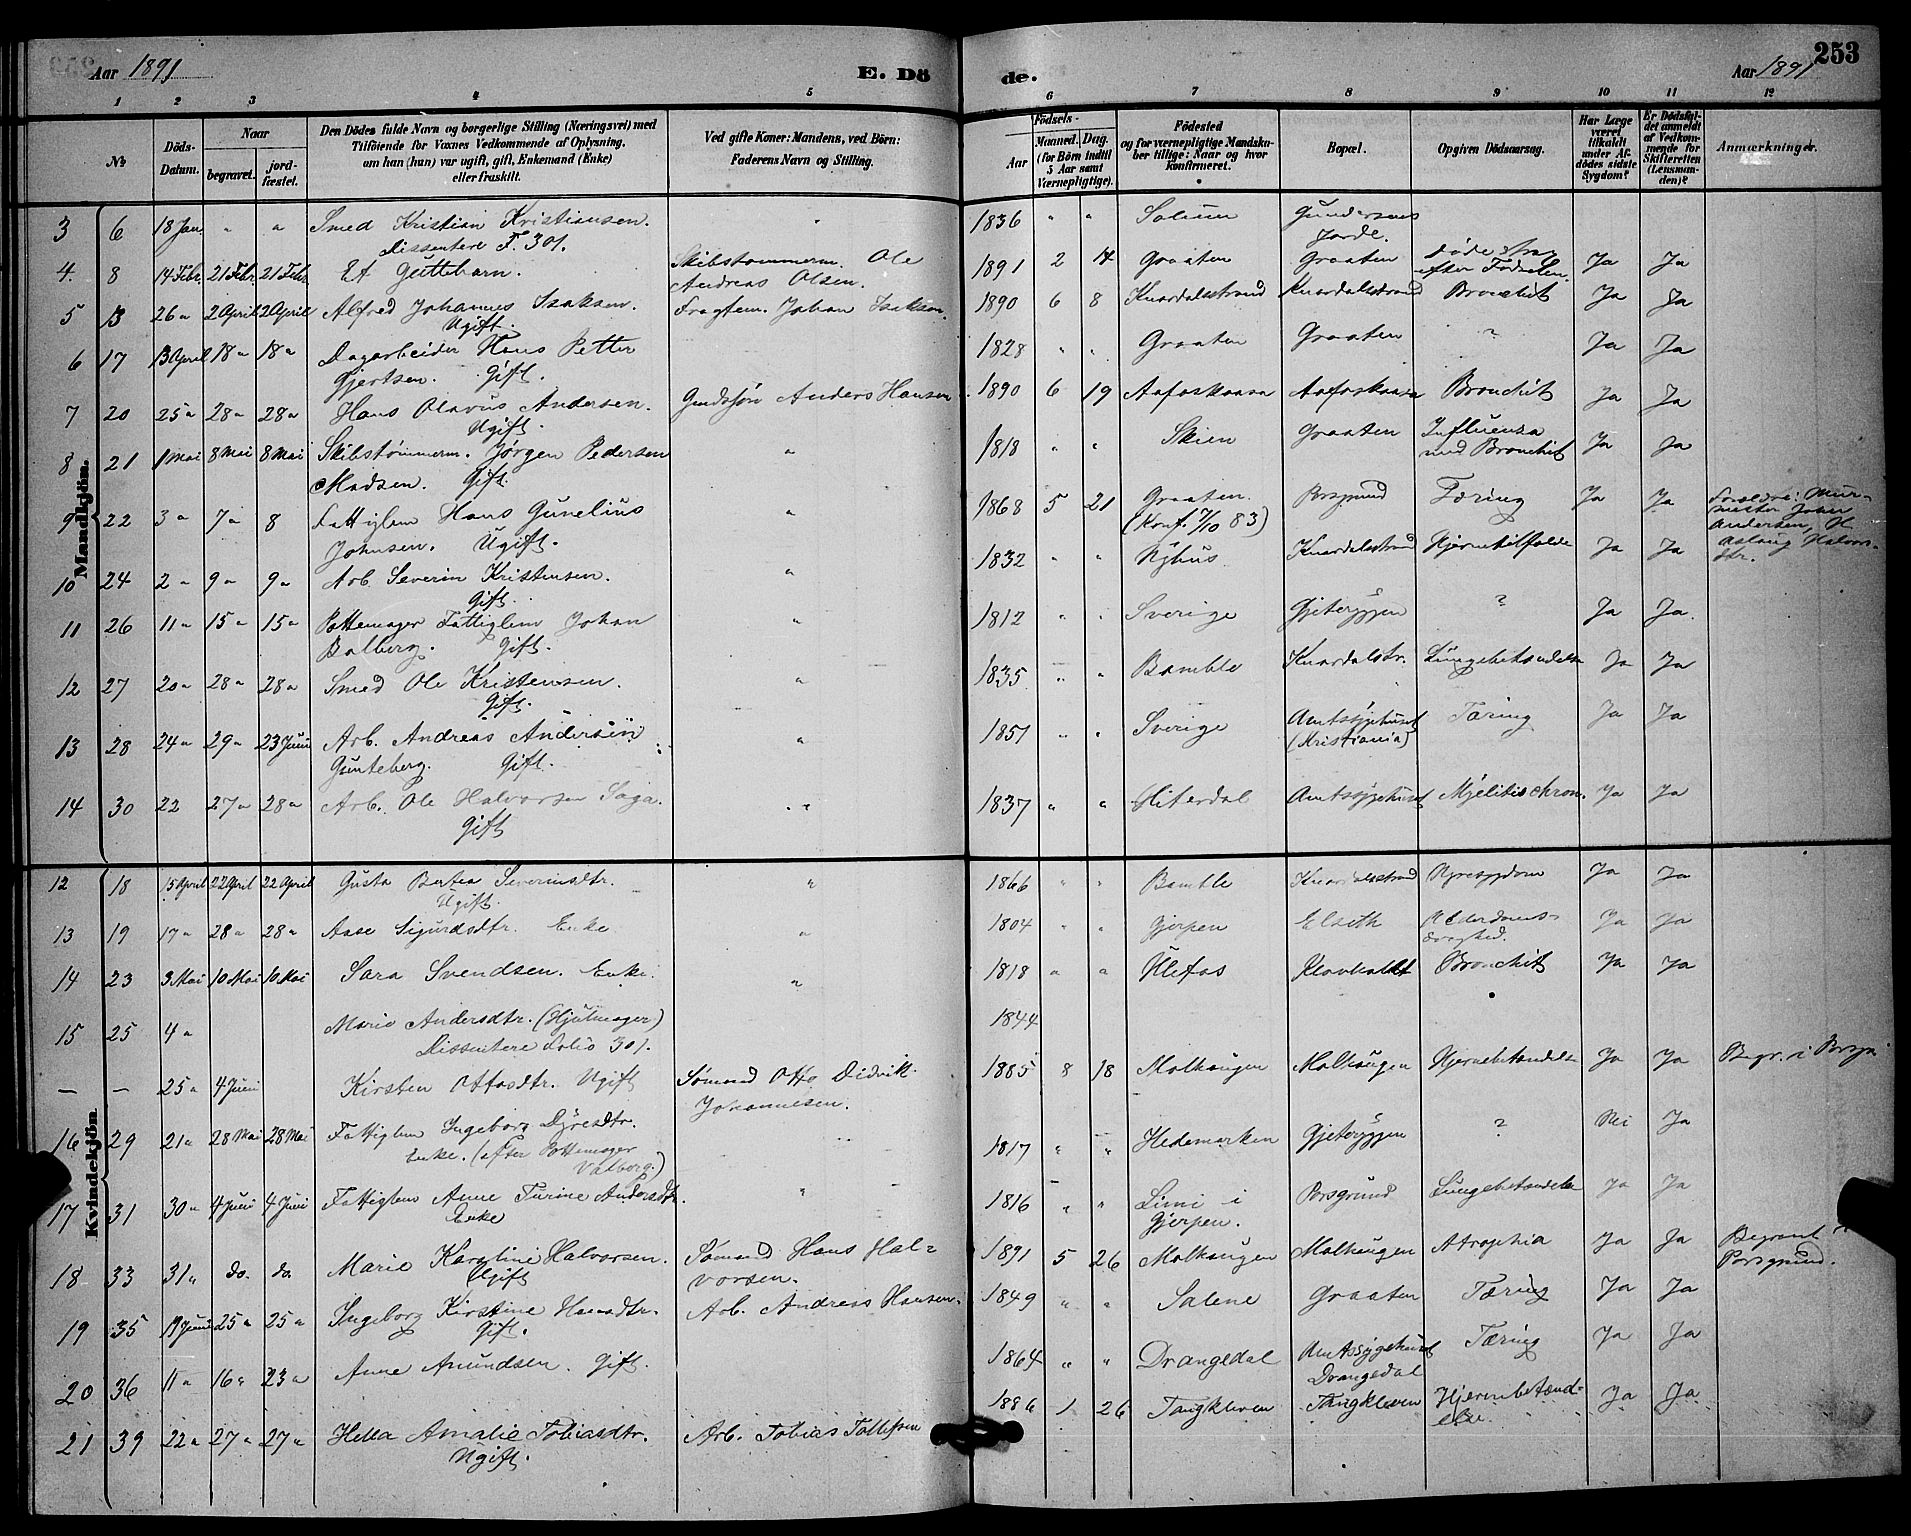 Aar 1891 E. Döde. Aar 1891 253
1 2 3 4 5 6 7 8 9 10 11 12
No
Döds-Datum.
Naar
begravet.
jordfæstet.
Den Dödes fulde Navn og borgerlige Stilling (Næringsvei) med
Tilföiende for Voxnes Vedkommende af Oplysning,
om han (hun) var ugift, gift, Enkemand (Enke)
eller fraskilt.
Ved gifte Koner: Mandens, ved Börn:
Faderens Navn og Stilling.
Födsels-
Aar
Maaned. Dag.
(for Börn indtil
5 Aar samt
Værnepligtige).
Födested
og for værnepligtige Mandskaber tillige: Naar og hvor
konfirmeret.
Bopæl.
Opgiven Dödsaarsag.
Har Læge været tilkaldt under Afdödes sidste Sygdom?
Er Dödsfaldet anmeldt af Vedkommende for Skifteretten (Lensmanden)?
Anmærkninger.
Mandkjön.
3 6 18 Jan. " " Smed Kristian Kristiansen. " 1836 " " Solum Gundersens Jorde.
Dissentere F. 301.
4. 8 14 Febr. 21 Febr. 21 Febr. Et Guttebarn. Skibstømmerm. Ole Andreas Olsen. 1891 2 14 Graaten Graaten Døde strax efter Fødselen Ja Ja
5 13 26 " 2 April 2 April Alfred Johannes Isaksen. Ugift. Fragtem. Johan Isaksen. 1890 6 8 Knardalsstrand Knardalsstrand Bronchit Ja Ja
6 17 13 April 18 " 18 " Dagarbeider Hans Petter Gjertsen. Gift. 1828 " " Graaten Graaten ? Ja Ja
7 20 25 " 28 " 28 " Hans Olavus Andersen. Ugift. Anders Hansen 1890 6 19 Aafoskaasa Aafoskaasa Bronchit Ja Ja
8 21 1 Mai 8 Mai 8 Mai Skibstømmerm. Jørgen Pedersen Madsen. Gift. " 1818 " " Skien Graaten Influenza med Bronchit Ja Ja
9 22 3 " 7 " 8 Fattiglem Hans Gunelius Johnsen. Ugift. " 1868 5 21 Graaten. (Konf. 7/10 83) Porsgrund Tæring Ja Ja Forældre: Murmester John Andersen, H. Aslaug Halvorsdtr.
10 24 2 " 9 " 9 " Arb. Severin Kristensen. Gift. " 1832 " " Nyhus Knardalsstrand Hjernetilfælde Ja Ja
11 26 11 " 15 " 15 " Pottemager Fattiglem Johan Balberg. Gift. " 1812 " " Sverige Gjeteryggen ? Ja Ja.
12 27 20 " 28 " 28 " Smed Ole Kristensen. Gift. " 1835 " " Bamble Knardalstr. Lungebetændelse Ja Ja
13 28 24 " 29 " 23 Juni Arb. Andreas Andersen Gunteberg. Gift. " 1851 " " Sverige Amtssygehuset (Kristiania) Tæring Ja Ja
14 30 22 27 " 28 " Arb. Ole Halvorsen Saga. Gift " 1837 " " Hiterdal Amtssygehuset Myelitis chron. Ja Ja
Kvindekjön
12 18 15 April 22 April 22 April Gusta Bertea Severinsdtr. Ugift. " 1866 " " Bamble Knardalsstrand Nyresygdom Ja Ja
13 19 17 " 28 " 28 " Aase Sigurdsdtr. Enke " 1804 " " Gjerpen Elseth Alderdomssvaghed. Ja Ja
14 23 3 Mai 10 Mai 10 Mai Sara Svendsen. Enke. " 1818 " " Ulefos Klovholt Bronchit Ja Ja
15 25 4 " Marie Andersdtr. (Hjulmager) Dissentere Folio 301. 1844
— — 25 " 4 Juni Kirsten Ottosdtr. Ugift Sømand Otto Didrik Johannesen. 1885 8 18 Molhaugen Molhaugen Hjernebetændelse Ja Ja Begr. i Porsgr.
16 29 21 " 28 Mai 28 Mai Fattiglem Ingeborg Dyresdtr. Enke. (efter Pottemager Valborg.) " 1817 " " Hedemarken Gjeteryggen ? Nei Ja
17 31 30 " 4 Juni 4 Juni Fattiglem Anne Turine Andersdtr. Enke " 1816 " " Limi i Gjerpen. Porsgrund Lungebetændelse Ja Ja
18 33 31 " do. do. Marie Karoline Halvorsen. Ugift Sømand Hans Halvorsen. 1891 5 26 Molhaugen Molhaugen Atrophia Ja Ja Begravet i Porsgrund.
19 35 19 Juni 25 " 25 " Ingeborg Kirstine Hansdtr. Gift. Arb. Andreas Hansen. 1849 " " Salene Graaten Tæring Ja Ja
20 36 11 " 16 " 23 " Anne Amundsen. Gift. 1864 " " Drangedal Amtssygehuset Drangedal Tæring Ja Ja
21 39 22 " 27 " 27 " Helea Amalie Tobiasdtr. Ugift. Arb. Tobias Tollefsen 1886 1 26 Tangkleven Tangkleven Hjernebetændelse. Ja Ja